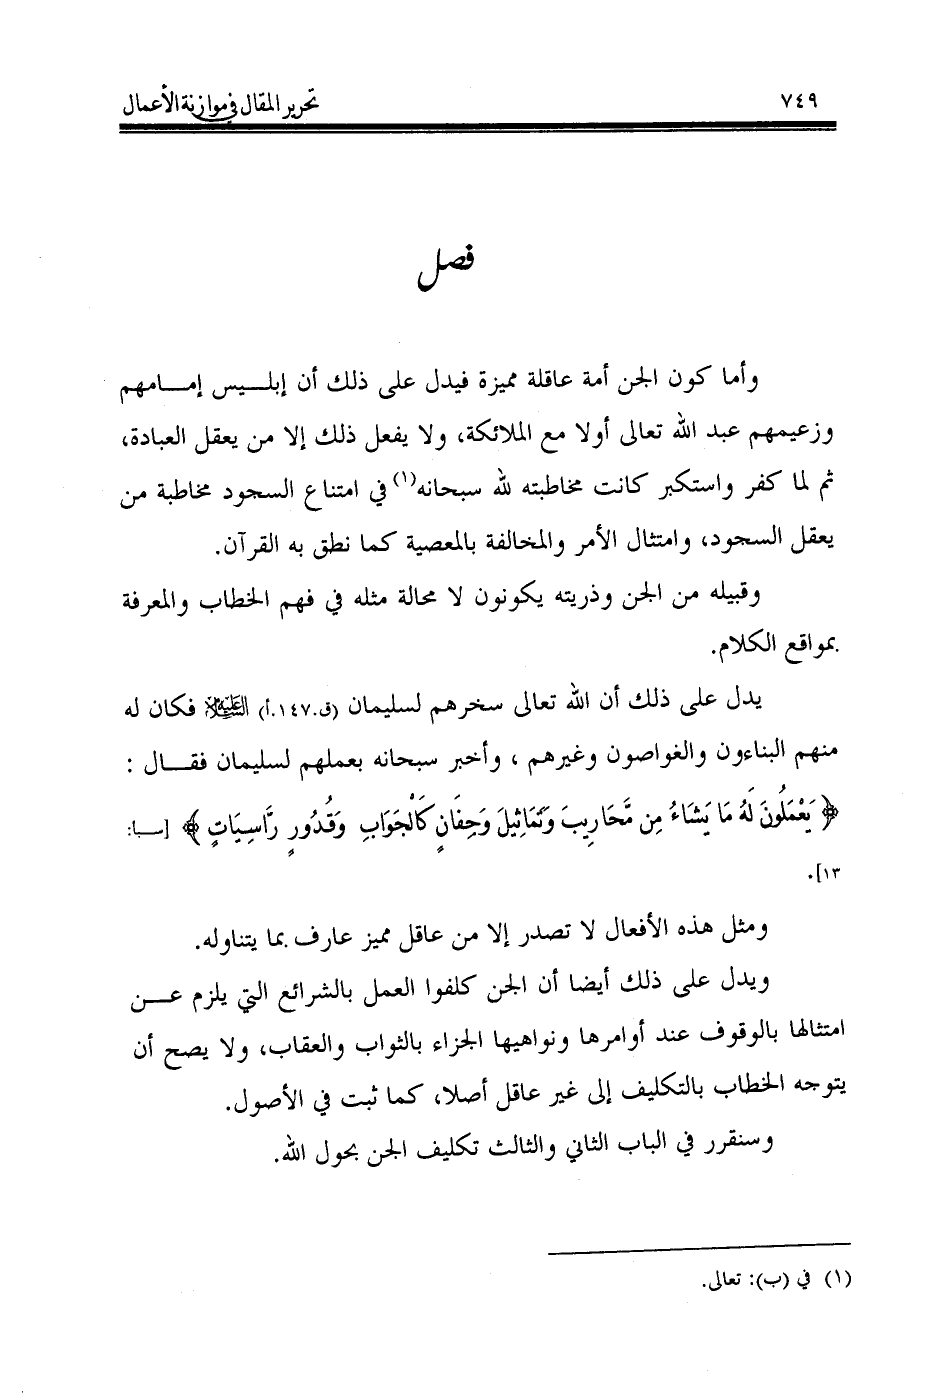 ٧٤٩ تحرير المقال في موازنة الأعمال
فصل
وأما كون الجن أمة عاقلة مميزة فيدل على ذلك أن إبلـــيس إمـــامهم
وزعيمهم عبد الله تعالى أولا مع الملائكة، ولا يفعل ذلك إلا من يعقل العبادة،
ثم لما كفر واستكبر كانت مخاطبته لله سبحانه(١) في امتناع السجود مخاطبة من
يعقل السجود، وامتثال الأمر والمخالفة بالمعصية كما نطق به القرآن.
وقبيله من الجن وذريته يكونون لا محالة مثله في فهم الخطاب والمعرفة
بمواقع الكلام.
يدل على ذلك أن الله تعالى سخرهم لسليمان (ق.١٤٧.أ) العَلَيْهِ السَّلَام فكان له
منهم البناءون والغواصون وغيرهم ، وأخبر سبحانه بعملهم لسليمان فقـــال :
﴿ يَعْمَلُونَ لَهُ مَا يَشَاءُ مِن مَّحَارِيبَ وَتَمَاثِيلَ وَجِفَانٍ كَالْجَوَابِ وَقُدُورٍ رَّاسِيَاتٍ ﴾ [ســبأ:
١٣].
ومثل هذه الأفعال لا تصدر إلا من عاقل مميز عارف بما يتناوله.
ويدل على ذلك أيضا أن الجن كلفوا العمل بالشرائع التي يلزم عـــن
امتثالها بالوقوف عند أوامرها ونواهيها الجزاء بالثواب والعقاب، ولا يصح أن
يتوجه الخطاب بالتكليف إلى غير عاقل أصلا، كما ثبت في الأصول.
وسنقرر في الباب الثاني والثالث تكليف الجن بحول الله.
(١) في (ب): تعالى.